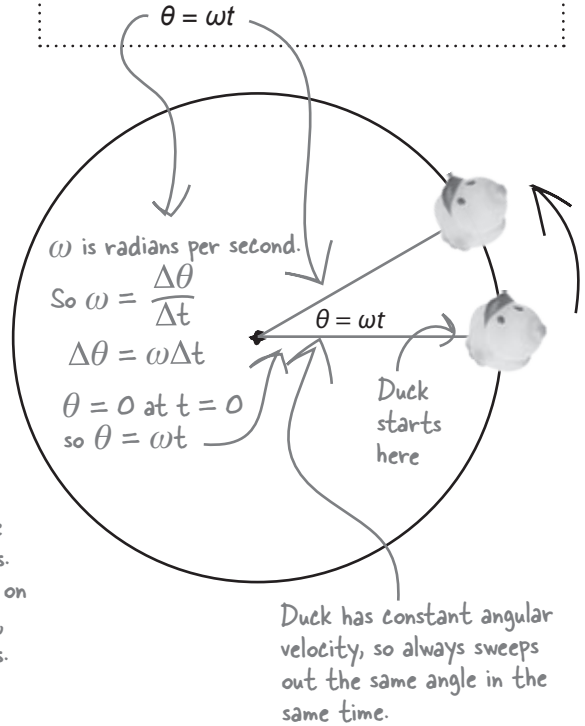 θ = ωt
ω is radians per second.
So ω = Δθ/Δt
Δθ = ωΔt
θ = 0 at t = 0
so θ = ωt
θ = ωt
Duck
starts
here
s.
on
s.
Duck has constant angular
velocity, so always sweeps
out the same angle in the
same time.